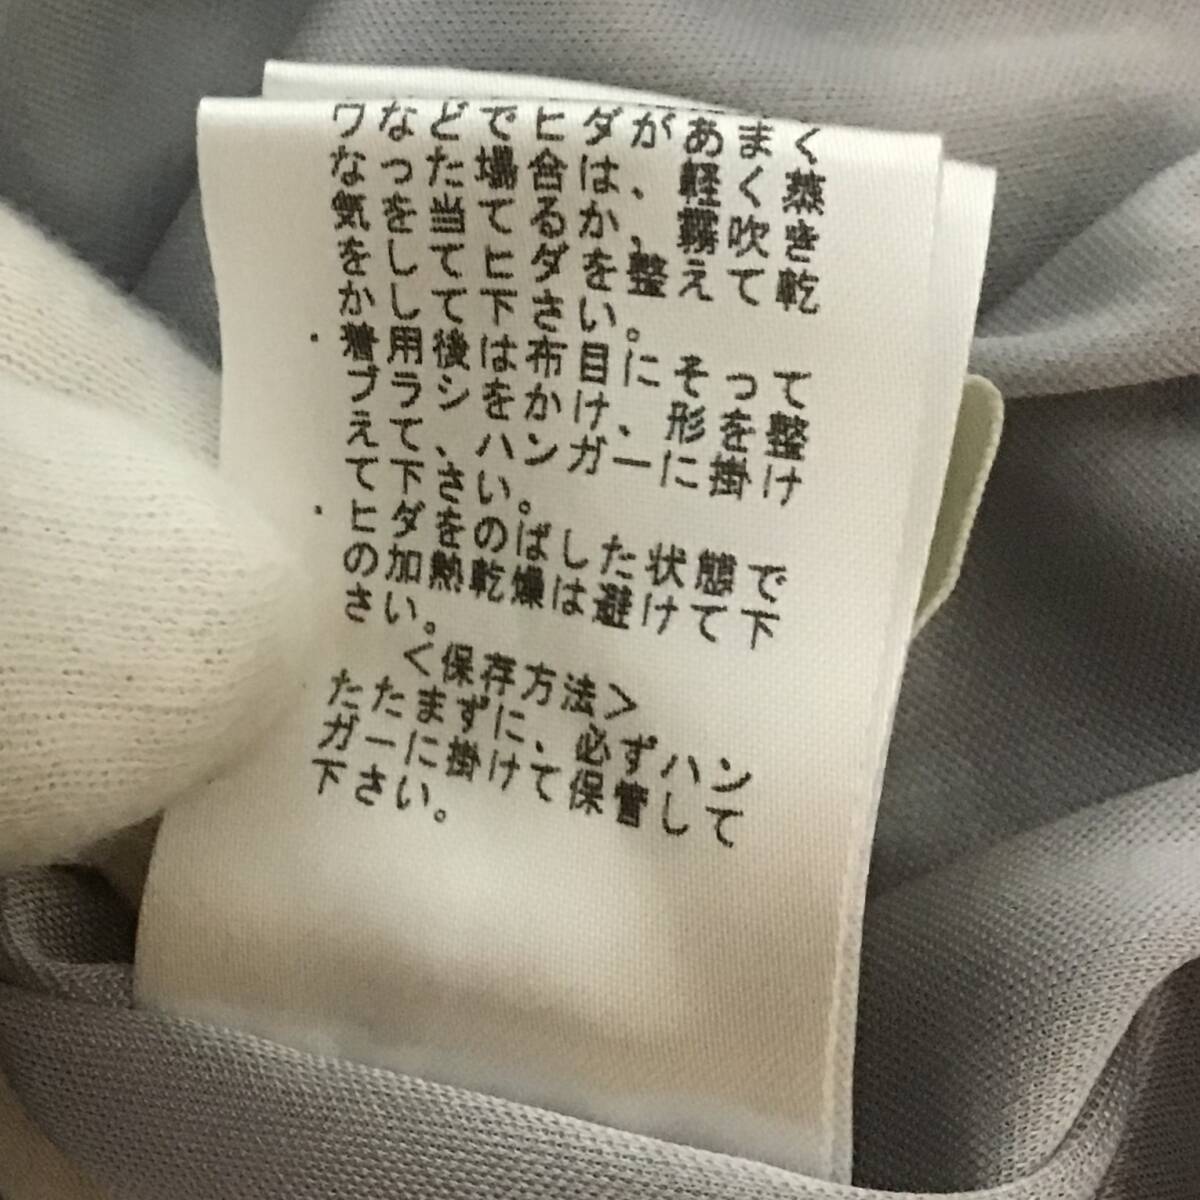 ワなどでヒダがあまく
なった場合は、軽く蒸
気を当てるか、霧吹き
をしてヒダを整えて乾
かして下さい。
・着用後は布目にそって
ブラシをかけ、形を整
えて、ハンガーに掛け
て下さい。
・ヒダをのばした状態で
の加熱乾燥は避けて下
さい。
<保存方法>
たたまずに、必ずハン
ガーに掛けて保管して
下さい。